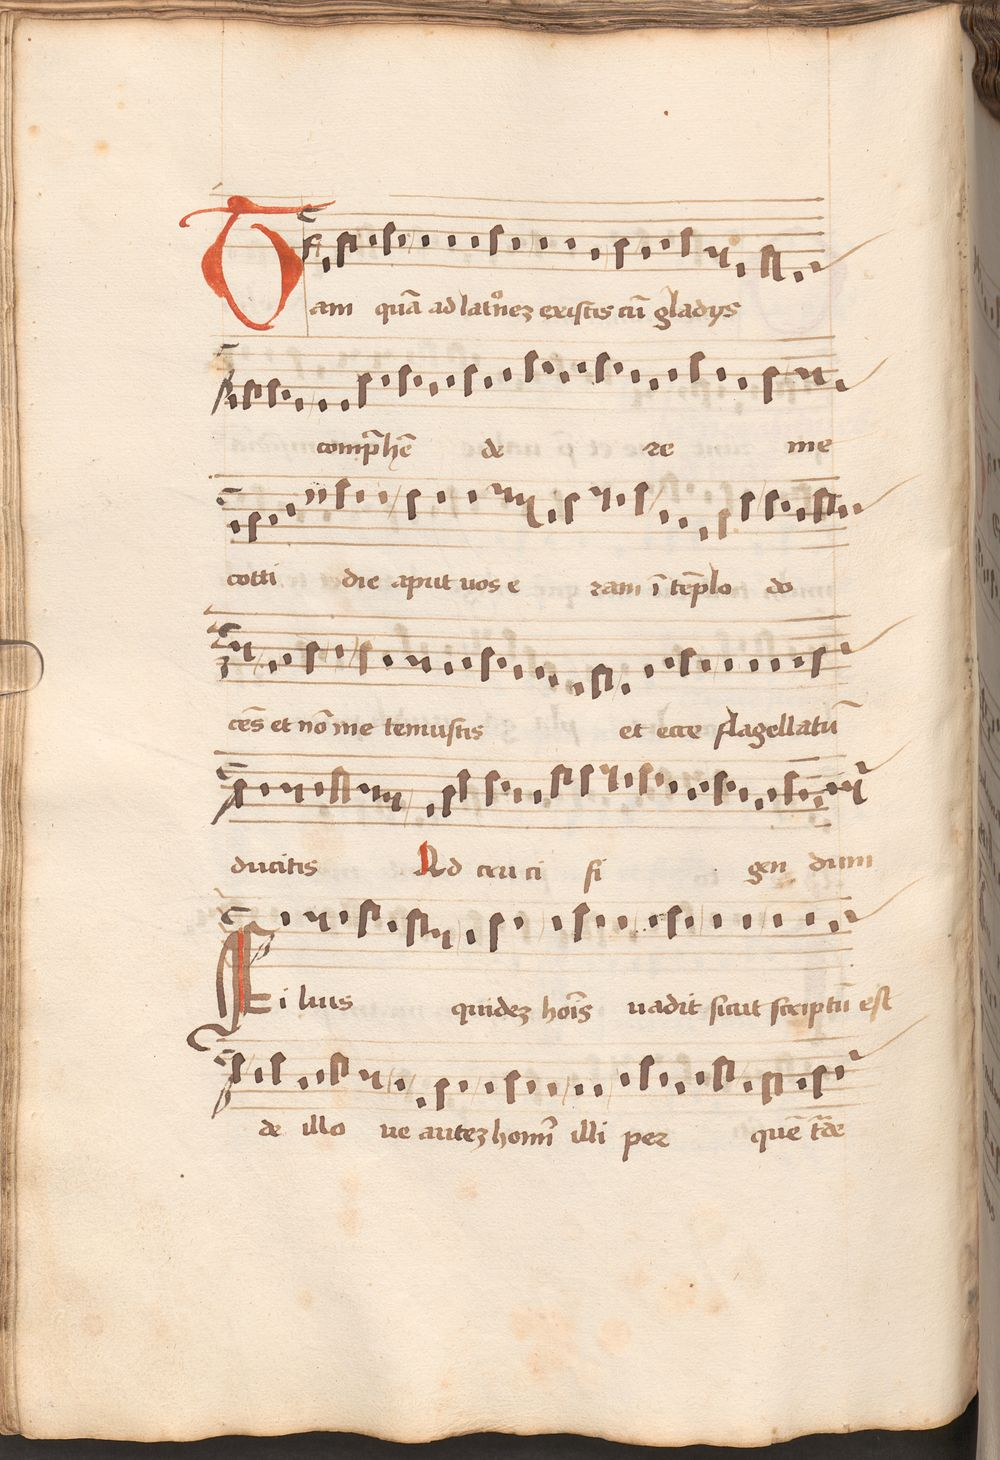 Tam quā ad latꝛ̊nez existis cū gladys
comp̄hē de re me
cotti die aput vos e ram ī tēplo do
cēs et nō me temustis et ecce flagellatū
ducitis Ad cru ci fi gen dum
Fi lius quidez hoīs vadit sicut scriptū est
de illo ve autez homī illi per quē tꝛ̄de